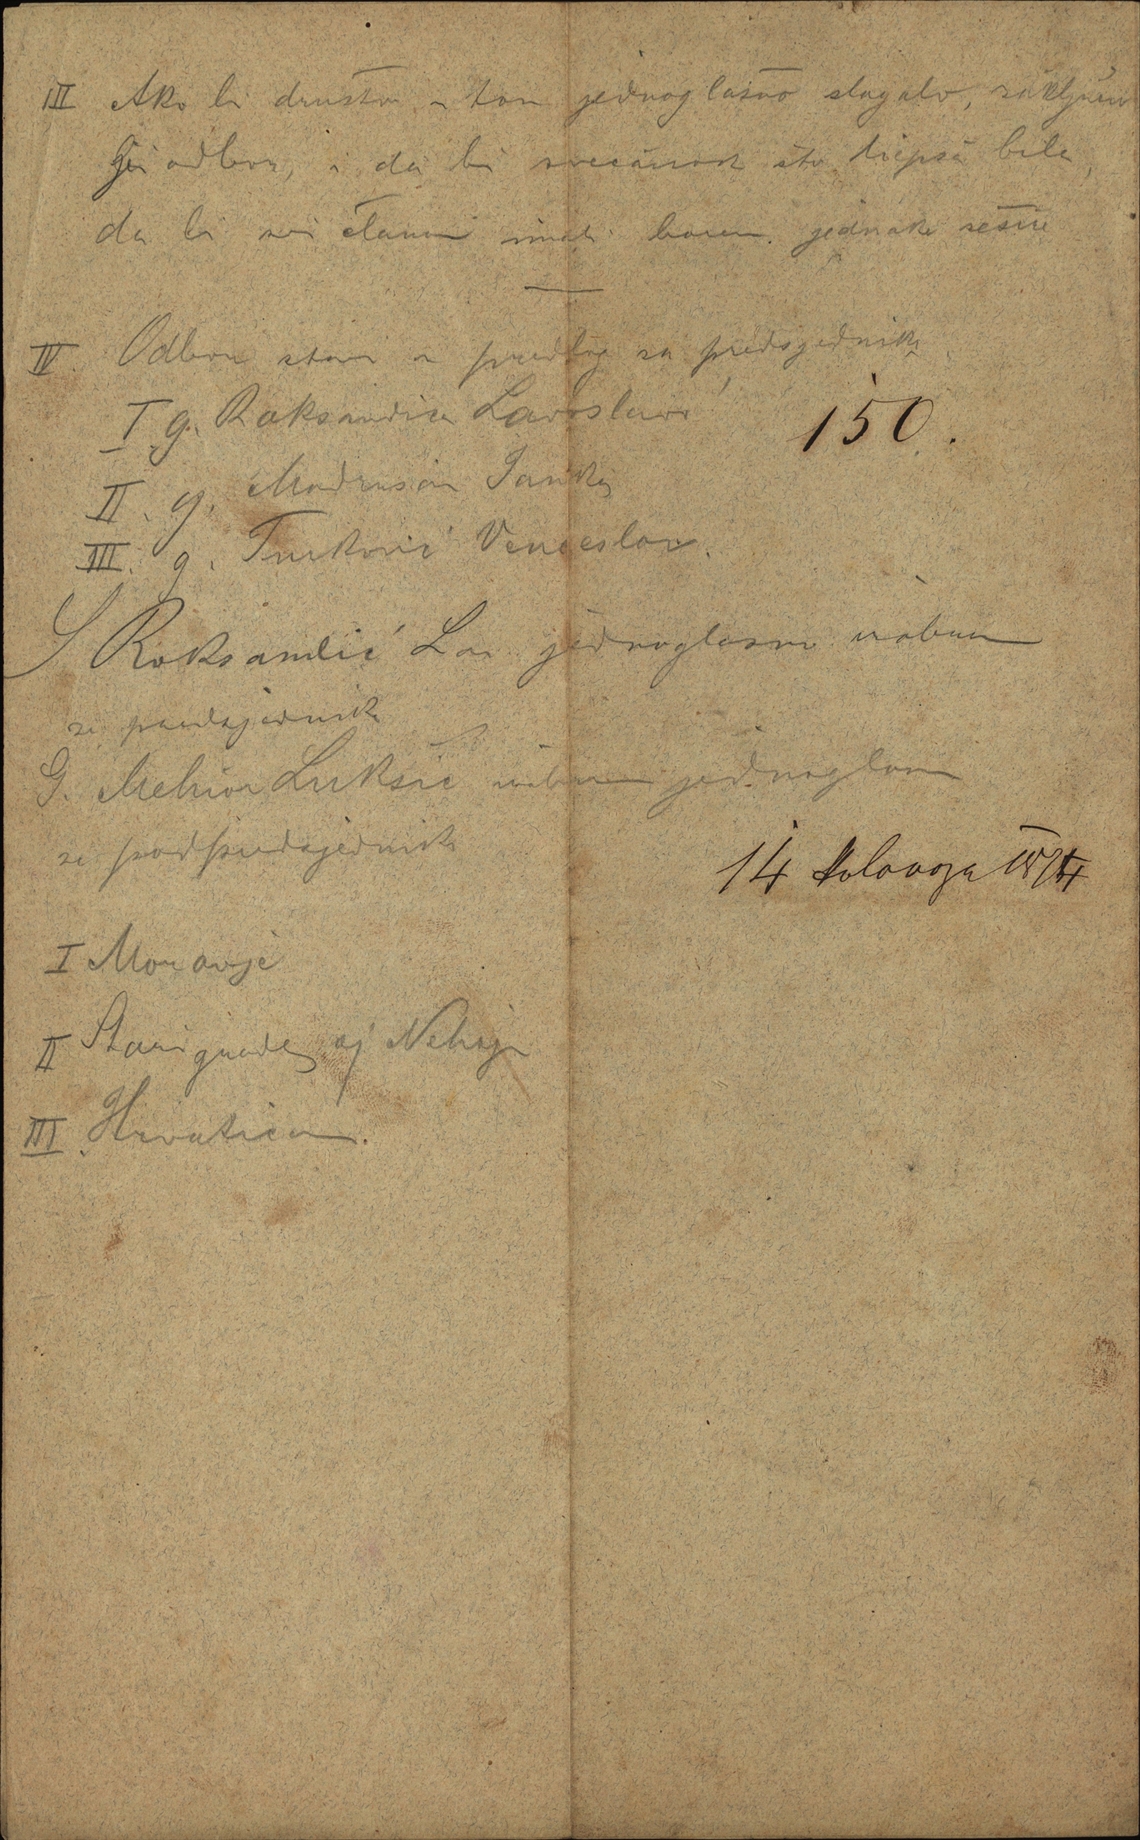 III Ako bi družtvo u tom jednoglasno slagalo, zaključuje
odbor, i da bi svečanost što liepša bila,
da bi svi članovi imali barem jednake šešire
IV. Odbor stavi u predlog za predsjednika
I g. Roksandića Lavoslava
150.
II. g. Modrušan Janka
III. g. Turković Venceslav.
Roksandić Lav. jednoglasno izabran
za predsjednika
G. Melkior Lukšić izabran jednoglasno
za podpredsjednika
14 kolovoza
I Moravje
II Starigrade aj Nehaj
III Hrvatica